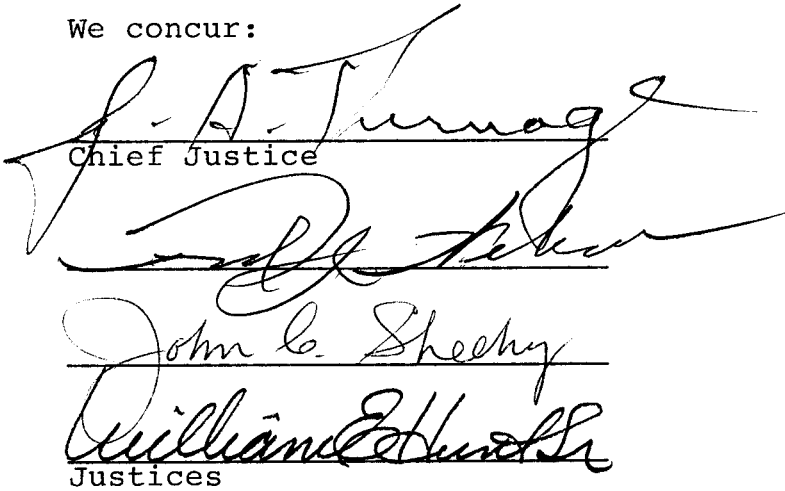 We concur:
J. A. Turnage
Chief Justice
John C. Sheehy
William E Hunt Sr
Justices